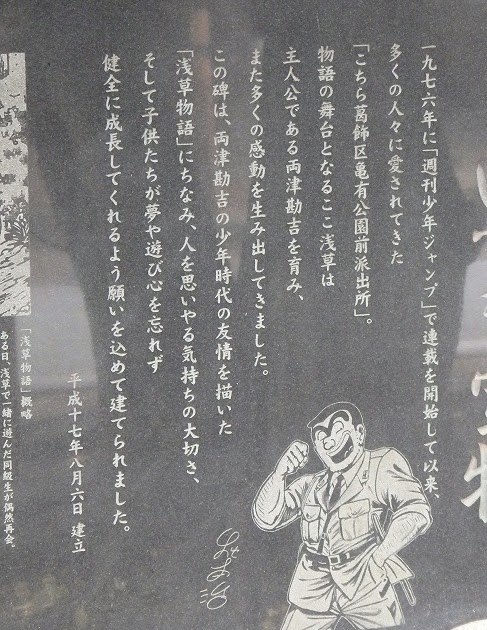 一九七六年に「週刊少年ジャンプ」で連載を開始して以来、
多くの人々に愛されてきた
「こちら葛飾区亀有公園前派出所」。
物語の舞台となるここ浅草は
主人公である両津勘吉を育み、
また多くの感動を生み出してきました。
この碑は、両津勘吉の少年時代の友情を描いた
「浅草物語」にちなみ、人を思いやる気持ちの大切さ、
そして子供たちが夢や遊び心を忘れず
健全に成長してくれるよう願いを込めて建てられました。
平成十七年八月六日 建立
「浅草物語」概略
ある日、浅草で一緒に遊んだ同級生が偶然再会。